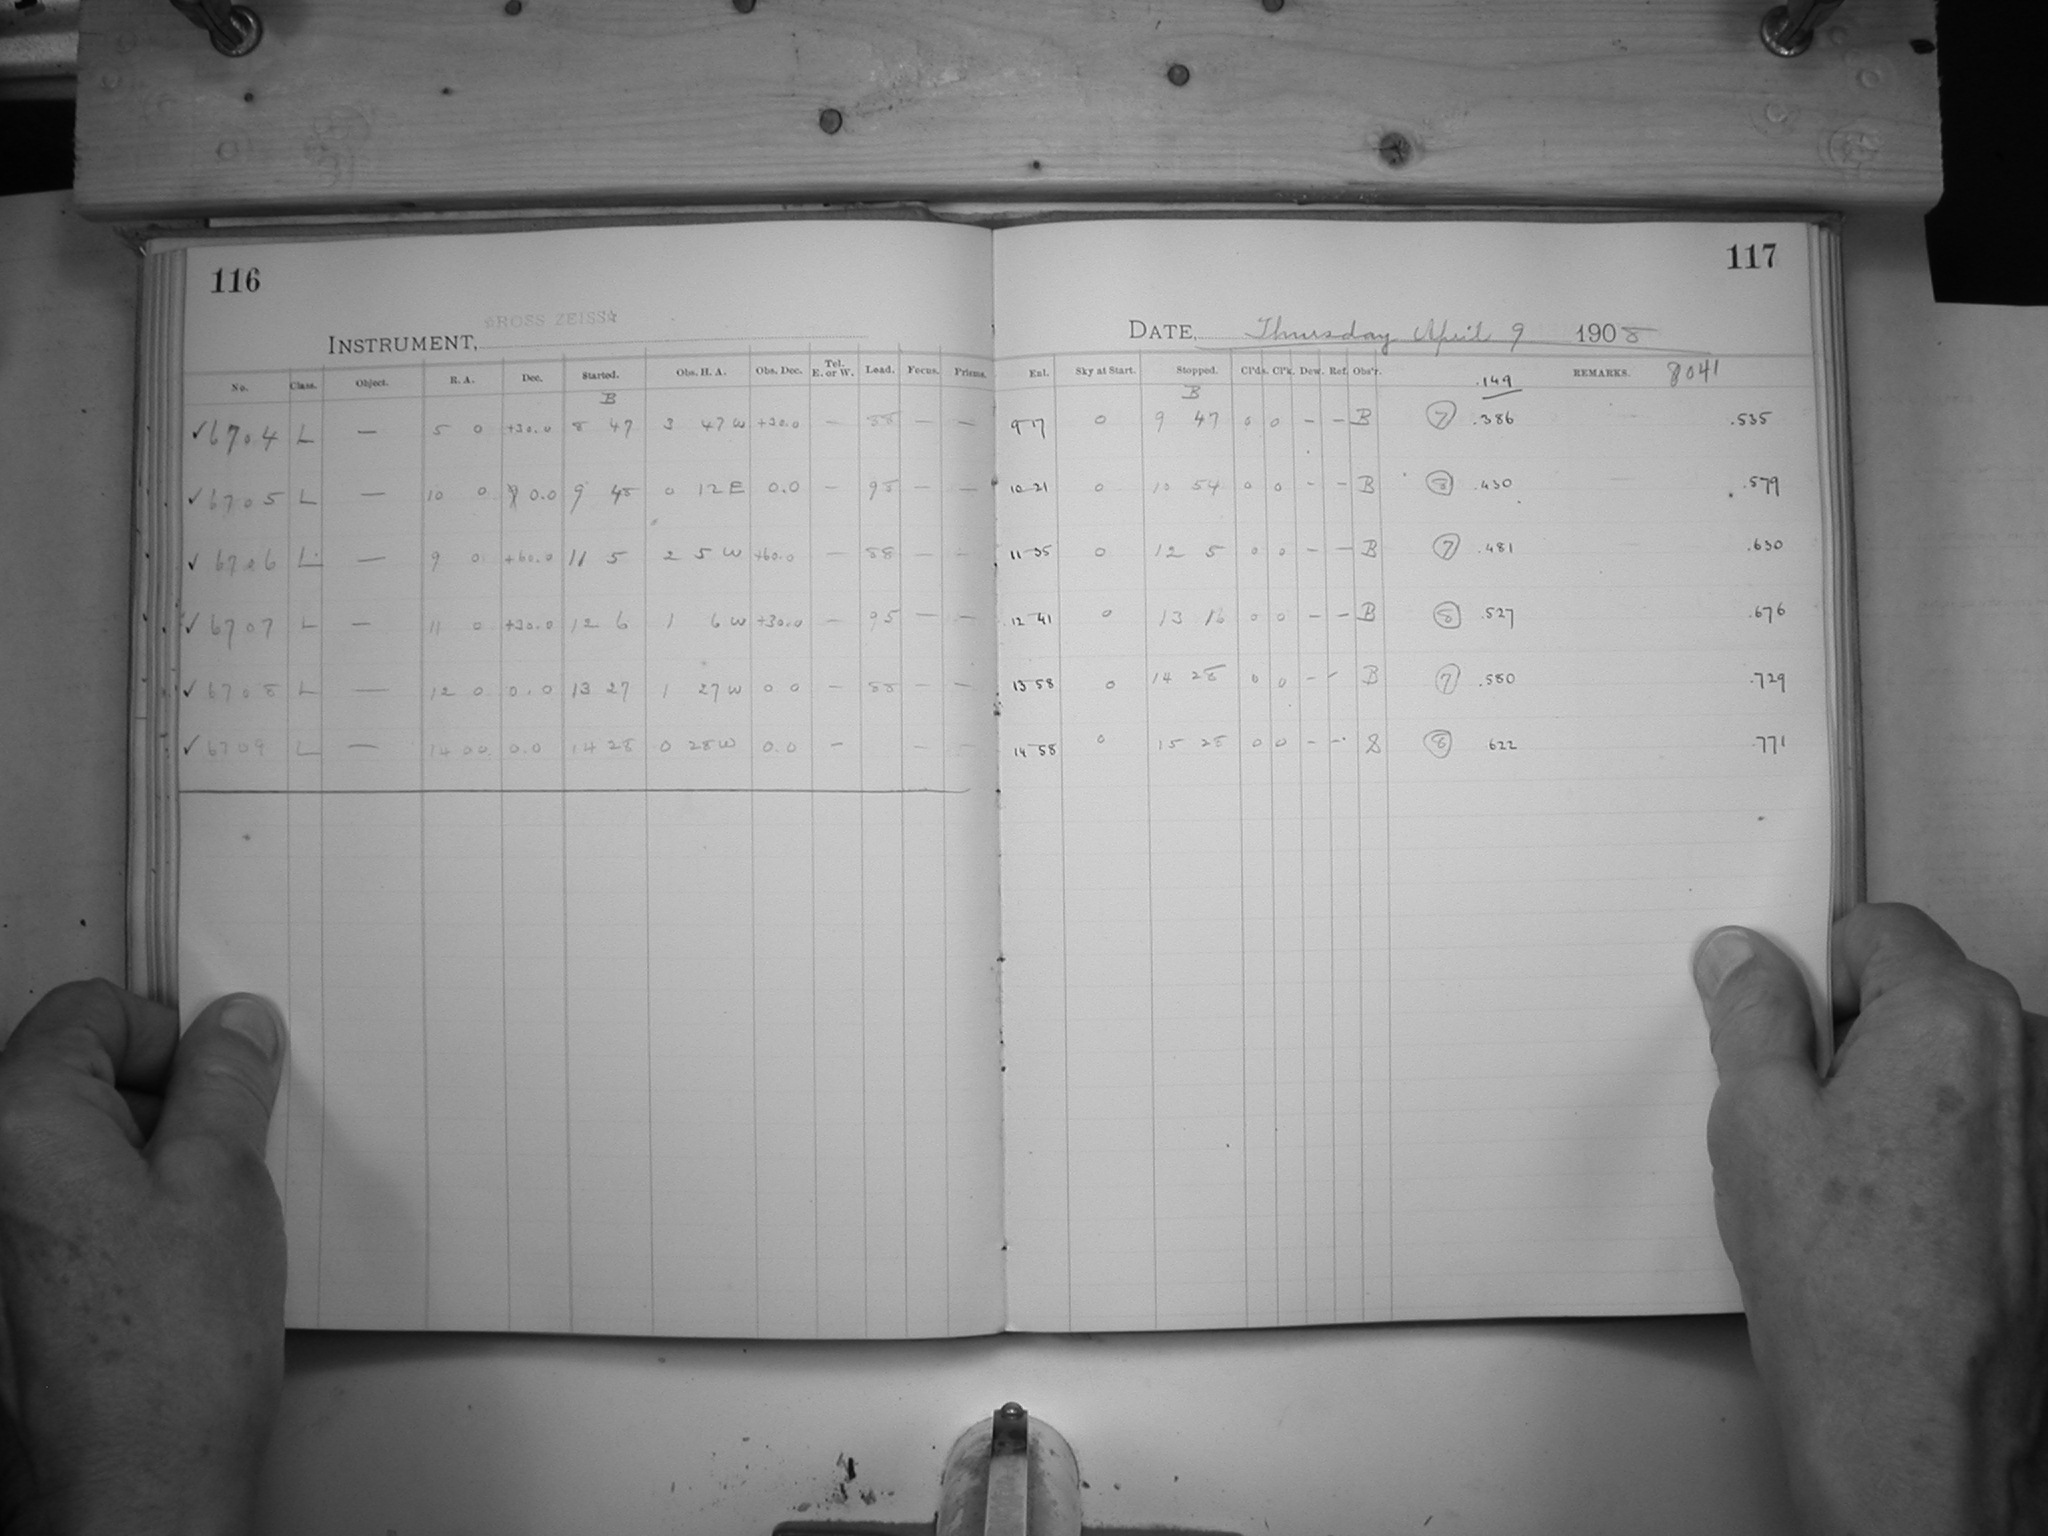 116
ROSS ZEISS
INSTRUMENT,
No. Class. Object. R. A. Dec. Started. Obs. H. A. Obs. Dec. Tel. E. or W. Lead. Focus. Prisms.
B
✓6704 L — 5 0 +30.0 8 47 3 47 W +30.0 — 88 — —
✓6705 L — 10 0 0.0 9 48 0 12 E 0.0 — 98 — —
✓6706 L — 9 0 +60.0 11 5 2 5 W +60.0 — 88 — —
✓6707 L — 11 0 +30.0 12 6 1 6 W +30.0 — 95 — —
✓6708 L — 12 0 0.0 13 27 1 27 W 0 0 — 88 — —
✓6709 L — 14 00 0.0 14 28 0 28 W 0.0 — — —
117
DATE, Thursday April 9 1908
Enl. Sky at Start. Stopped. Cl'ds. Cl'k. Dew. Ref. Obs'r. .149 REMARKS. 8041
B
9 17 0 9 47 0 0 — — B 7 .386 — .535
10 21 0 10 54 0 0 — — B 8 .430 — .579
11 35 0 12 5 0 0 — — B 7 .481 .630
12 41 0 13 16 0 0 — — B 8 .527 .676
13 58 0 14 28 0 0 — — B 7 .580 .729
14 58 0 15 28 0 0 — — 8 622 .771